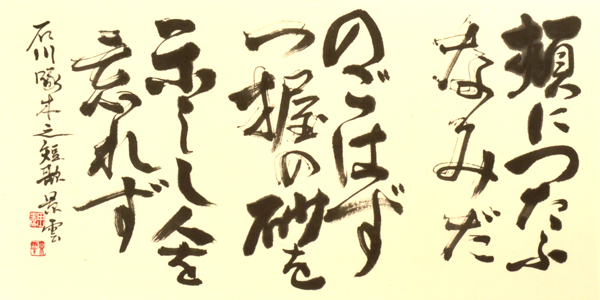 頬につたふ
なみだ
のごはず
一握の砂を
示しし人を
忘れず
石川啄木之短歌 景雲